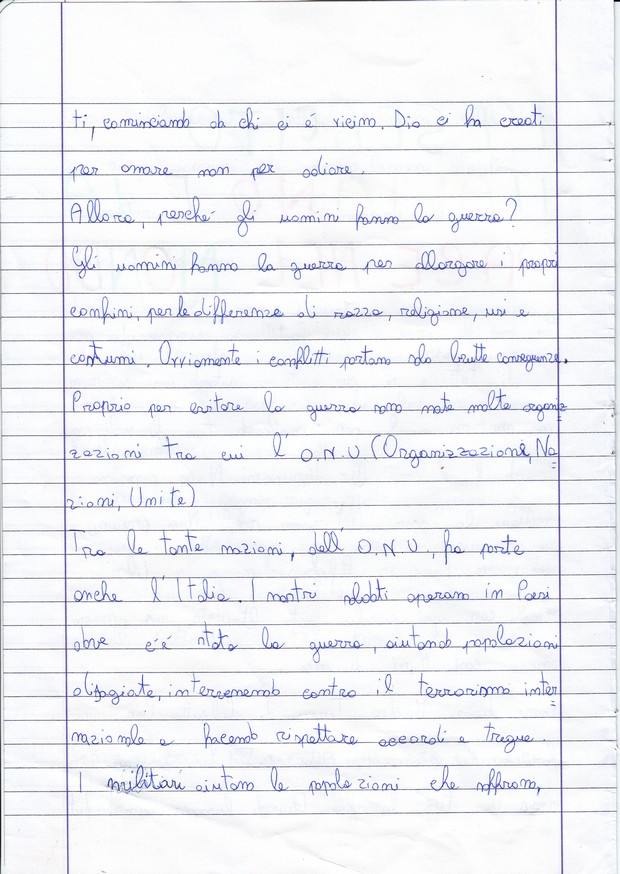 ti, cominciando da chi ci é vicino. Dio ci ha creati
per amare non per odiare.
Allora, perché gli uomini fanno la guerra?
Gli uomini fanno la guerra per allargare i propri
confini, per le differenze di razza, religione, usi e
costumi. Ovviamente i conflitti portano solo brutte conseguenze.
Proprio per evitare la guerra sono nate molte organiz
zazioni tra cui l' O.N.U (Organizzazioni, Na
zioni, Unite)
Tra le tante nazioni, dell' O.N.U., fa parte
anche l'Italia. I nostri soldati operano in Paesi
dove c'é stata la guerra, aiutando popolazioni
disagiate, intervenendo contro il terrorismo inter
nazionale e facendo rispettare accordi e tregue.
I militari aiutano le popolazioni che soffrono,